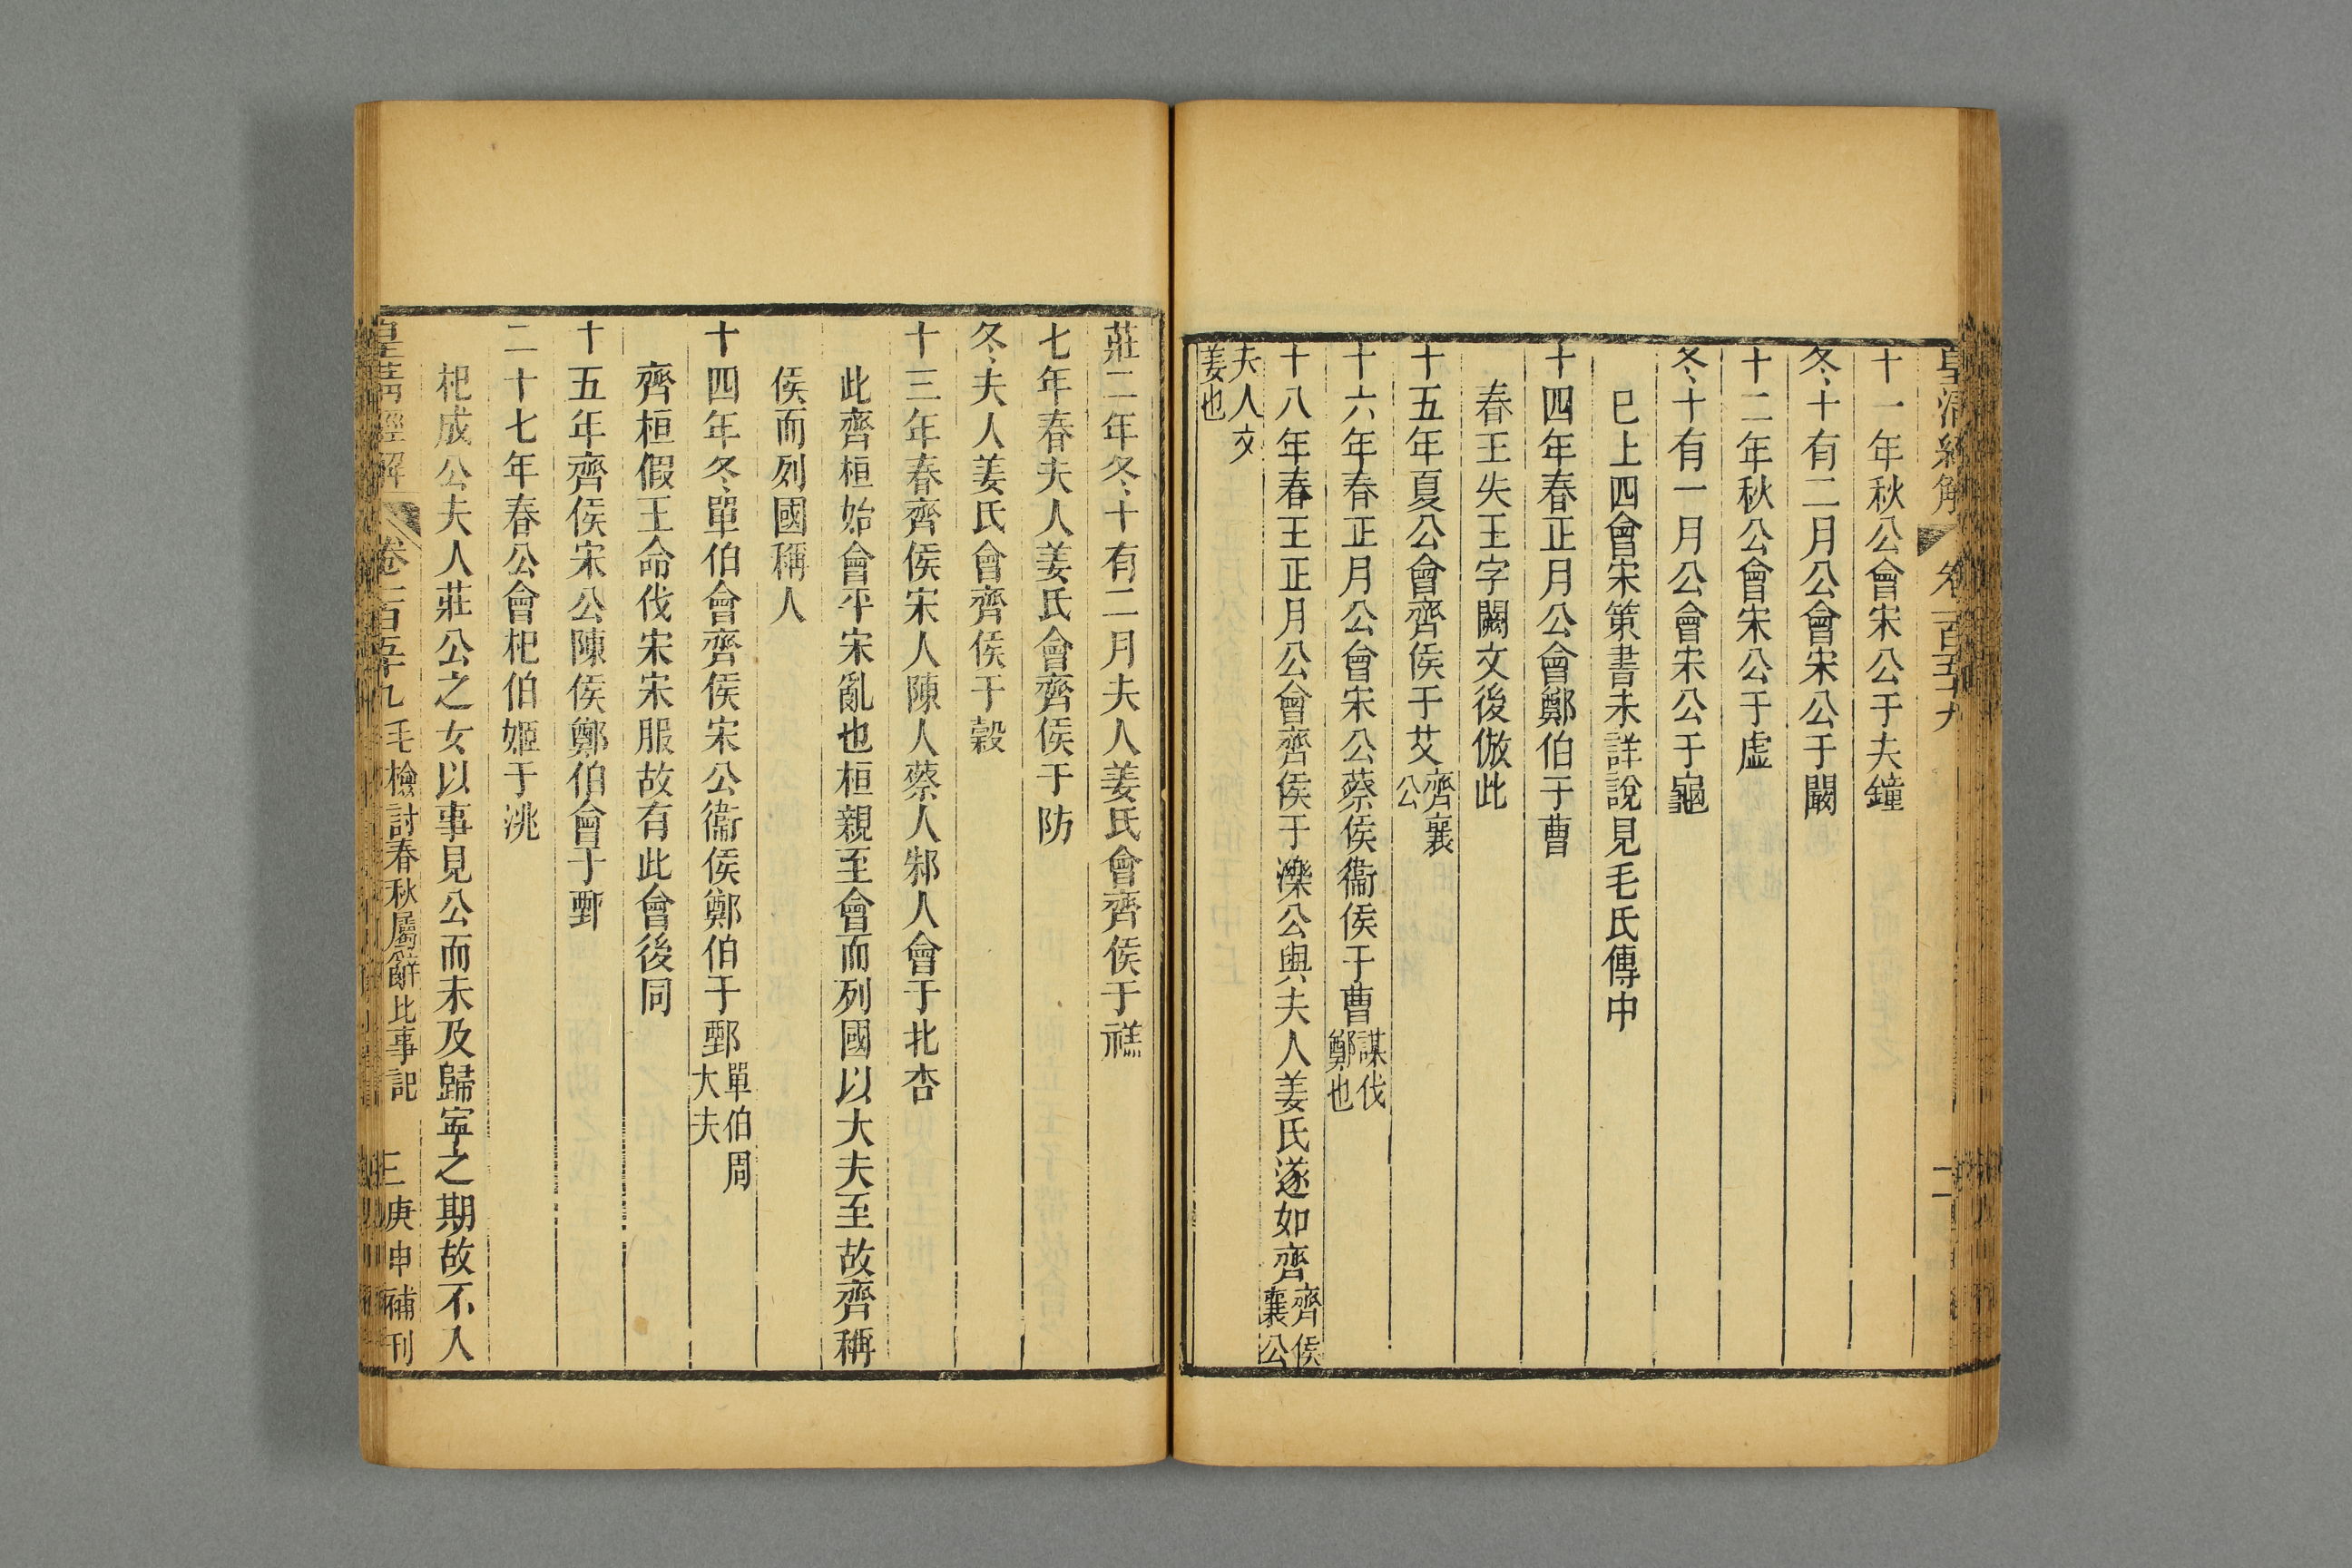 皇清經解 卷一百五十九 二
十一年秋公會宋公于夫鐘
冬十有二月公會宋公于闞
十二年秋公會宋公于虛
冬十有一月公會宋公于龜
巳上四會宋策書未詳說見毛氏傳中
十四年春正月公會鄭伯于曹
春王失王字闕文後倣此
十五年夏公會齊侯于艾齊襄公
十六年春正月公會宋公蔡侯衞侯于曹謀伐鄭也
十八年春王正月公會齊侯于濼公與夫人姜氏遂如齊齊侯襄公
夫人文姜也
莊二年冬十有二月夫人姜氏會齊侯于禚
七年春夫人姜氏會齊侯于防
冬夫人姜氏會齊侯于穀
十三年春齊侯宋人陳人蔡人邾人會于北杏
此齊桓始會平宋亂也桓親至會而列國以大夫至故齊稱
侯而列國稱人
十四年冬單伯會齊侯宋公衞侯鄭伯于鄄單伯周大夫
齊桓假王命伐宋宋服故有此會後同
十五年齊侯宋公陳侯鄭伯會于鄄
二十七年春公會杞伯姬于洮
杞成公夫人莊公之女以事見公而未及歸寧之期故不入
皇清經解 卷一百五十九 毛檢討春秋屬辭比事記 三 庚申補刊